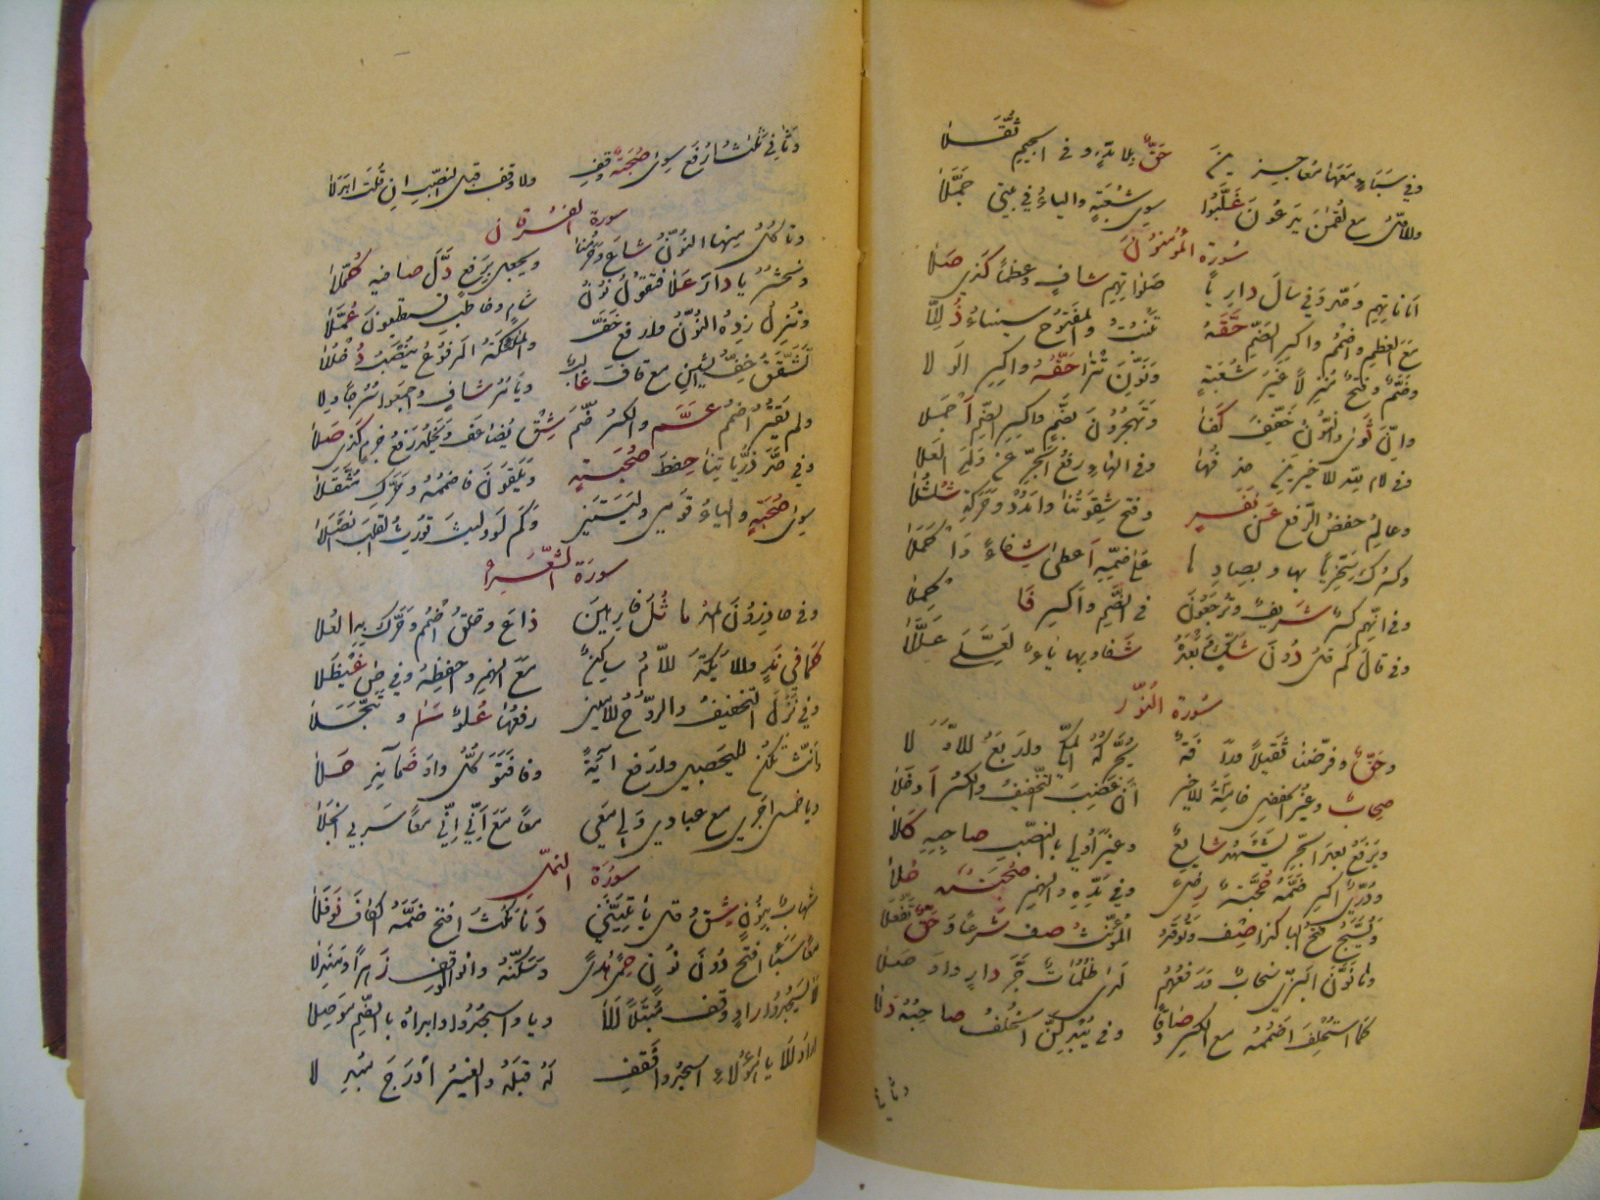 وفي سبأ معها معاجزين حق بلا مد وفي الجيم ثقلا
والاول مع لقمن يدعون غلبوا سوى شعبة والياء في بيتي جملا
سورة المؤمنون
اماناتهم وحد وفي سال داريا صلواتهم شاف وعظما كذي صلا
مع العظم واضمم واكسر الضم حقه بتنبت والمفتوح سيناء ذللا
وضم وفتح منزلا غير شعبة ونون تترا حقه واكسر الولا
وان ثوى والنون خفف كفا وتهجرون بضم واكسر الضم اجملا
وفي لام لله الاخيرين حذفها وفي الهاء رفع الجر عن ولد العلا
وعالم خفض الرفع عن نفر وفتح شقوتنا وامدد وحركه شلشلا
وكسرك سخريا بها وبصادها على ضمه اعطى شفاء واكملا
وفي انهم كسر شريف وترجعون في الضم فتح واكسر
وفي قال كم قل دون شك وبعده شفا وبها ياء لعلي عللا
سورة النور
وحق وفرضنا ثقيلا ورأفة يحركه المكي واربع اولا
صحاب وغير الحفص خامسة الاخير ان غضب التخفيف والكسر ادخلا
ويرفع بعد الجر يشهد شايع وغير اولي بالنصب صاحبه كلا
ودري اكسر ضمه حجة رضى وفي مده والهمز صحبته حلا
يسبح فتح البا كذا صف وتوقد المؤنث صف شرعا وحق تفعلا
وما نون البزي سحاب ورفعهم لدى ظلمات جر دار واوصلا
كما استخلف اضممه مع الكسر صادقا وفي يبدلن الخف صاحبه دلا
وثاني
وثاني ثلث ارفع سوى صحبة وقف ولا وقف قبل النصب ان قلت ابدلا
سورة الفرقان
وناكل منها النون شاع وجزمنا ويجعل برفع دل صافيه كملا
ونحشر يا دار علا فتقول نون شام وخاطب تستطيعون عملا
ونزل زده النون وارفع وخف والملئكة المرفوع ينصب دخللا
تشقق خف الشين مع قاف غالب ويأمر شاف واجمعوا سرجا ولا
ولم يقتروا اضمم عم والكسر ضم ثق يضاعف ويخلد رفع جزم كذي صلا
ووحد ذرياتنا حفظ صحبة ويلقون فاضممه وحرك مثقلا
سوى صحبة والياء قومي وليتني وكم لو وليت تورث القلب انصلا
سورة الشعراء
وفي حاذرون المد ما ثل فارهين ذاع وخلق اضمم وحرك به العلا
كما في ند والايكة اللام ساكن مع الهمز واخفضه وفي ص غيطلا
وفي نزل التخفيف والروح والامين رفعهما علو سما وتبجلا
وانث تكن لليحصبي وارفع اية وفا فتوكل واو ظمآنه حلا
ويا خمس اجري مع عبادي ولي معي معا مع ابي اني معا ربي انجلا
سورة النمل
شهاب بنون ثق وقل يأتينني دنا مكث افتح ضمة الكاف نوفلا
معا سبأ افتح دون نون حمى هدى وسكنه وانو الوقف زهرا ومندلا
الا يسجدوا راو وقف مبتلى الا ويا واسجدوا وابدأه بالضم موصلا
اراد الا يا هؤلاء اسجدوا وقف له قبله والغير ادرج مبدلا